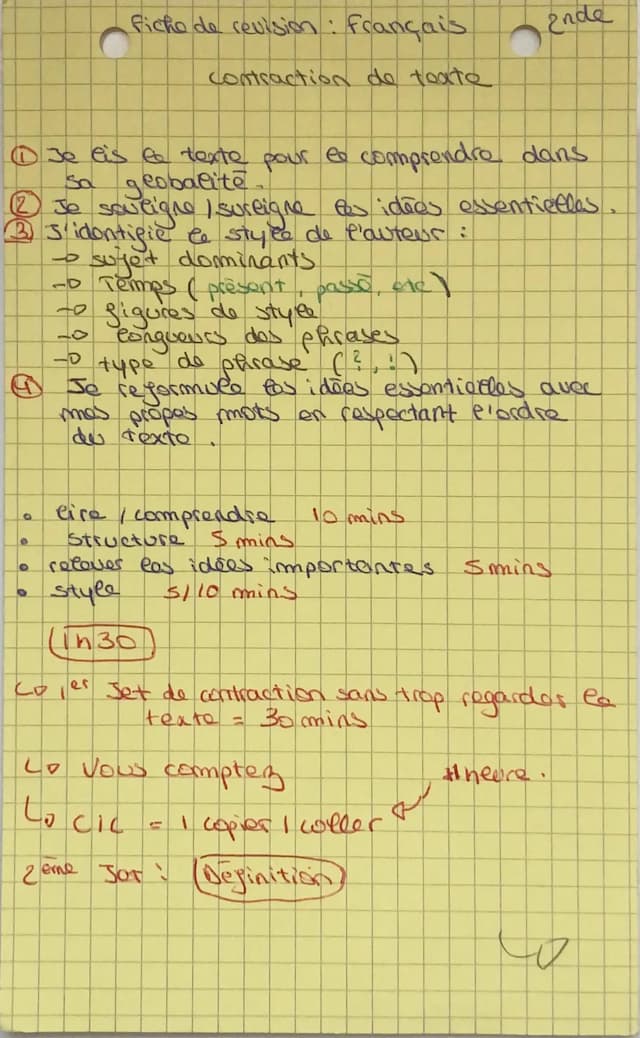 fiche de revision : Français 2nde
contraction de texte
① Je lis le texte pour le comprendre dans
sa globalité.
② Je souligne / surligne les idées essentielles.
③ J'identifie le style de l'auteur :
→ sujet dominants
→ Temps (présent, passé, etc)
→ figures de style
→ longueurs des phrases
→ type de phrase (?, !)
④ Je reformule les idées essentielles avec
mes propes mots en respectant l'ordre
du texte.
• lire / comprendre 10 mins
• structure 5 mins
• relever les idées importantes 5 mins
• style 5/10 mins
1h30
↳ 1er Jet de contraction sans trop regarder le
texte = 30 mins
↳ Vous comptez
heure.
↳ C/C = 1 copier / coller
2ème Jet : Définition